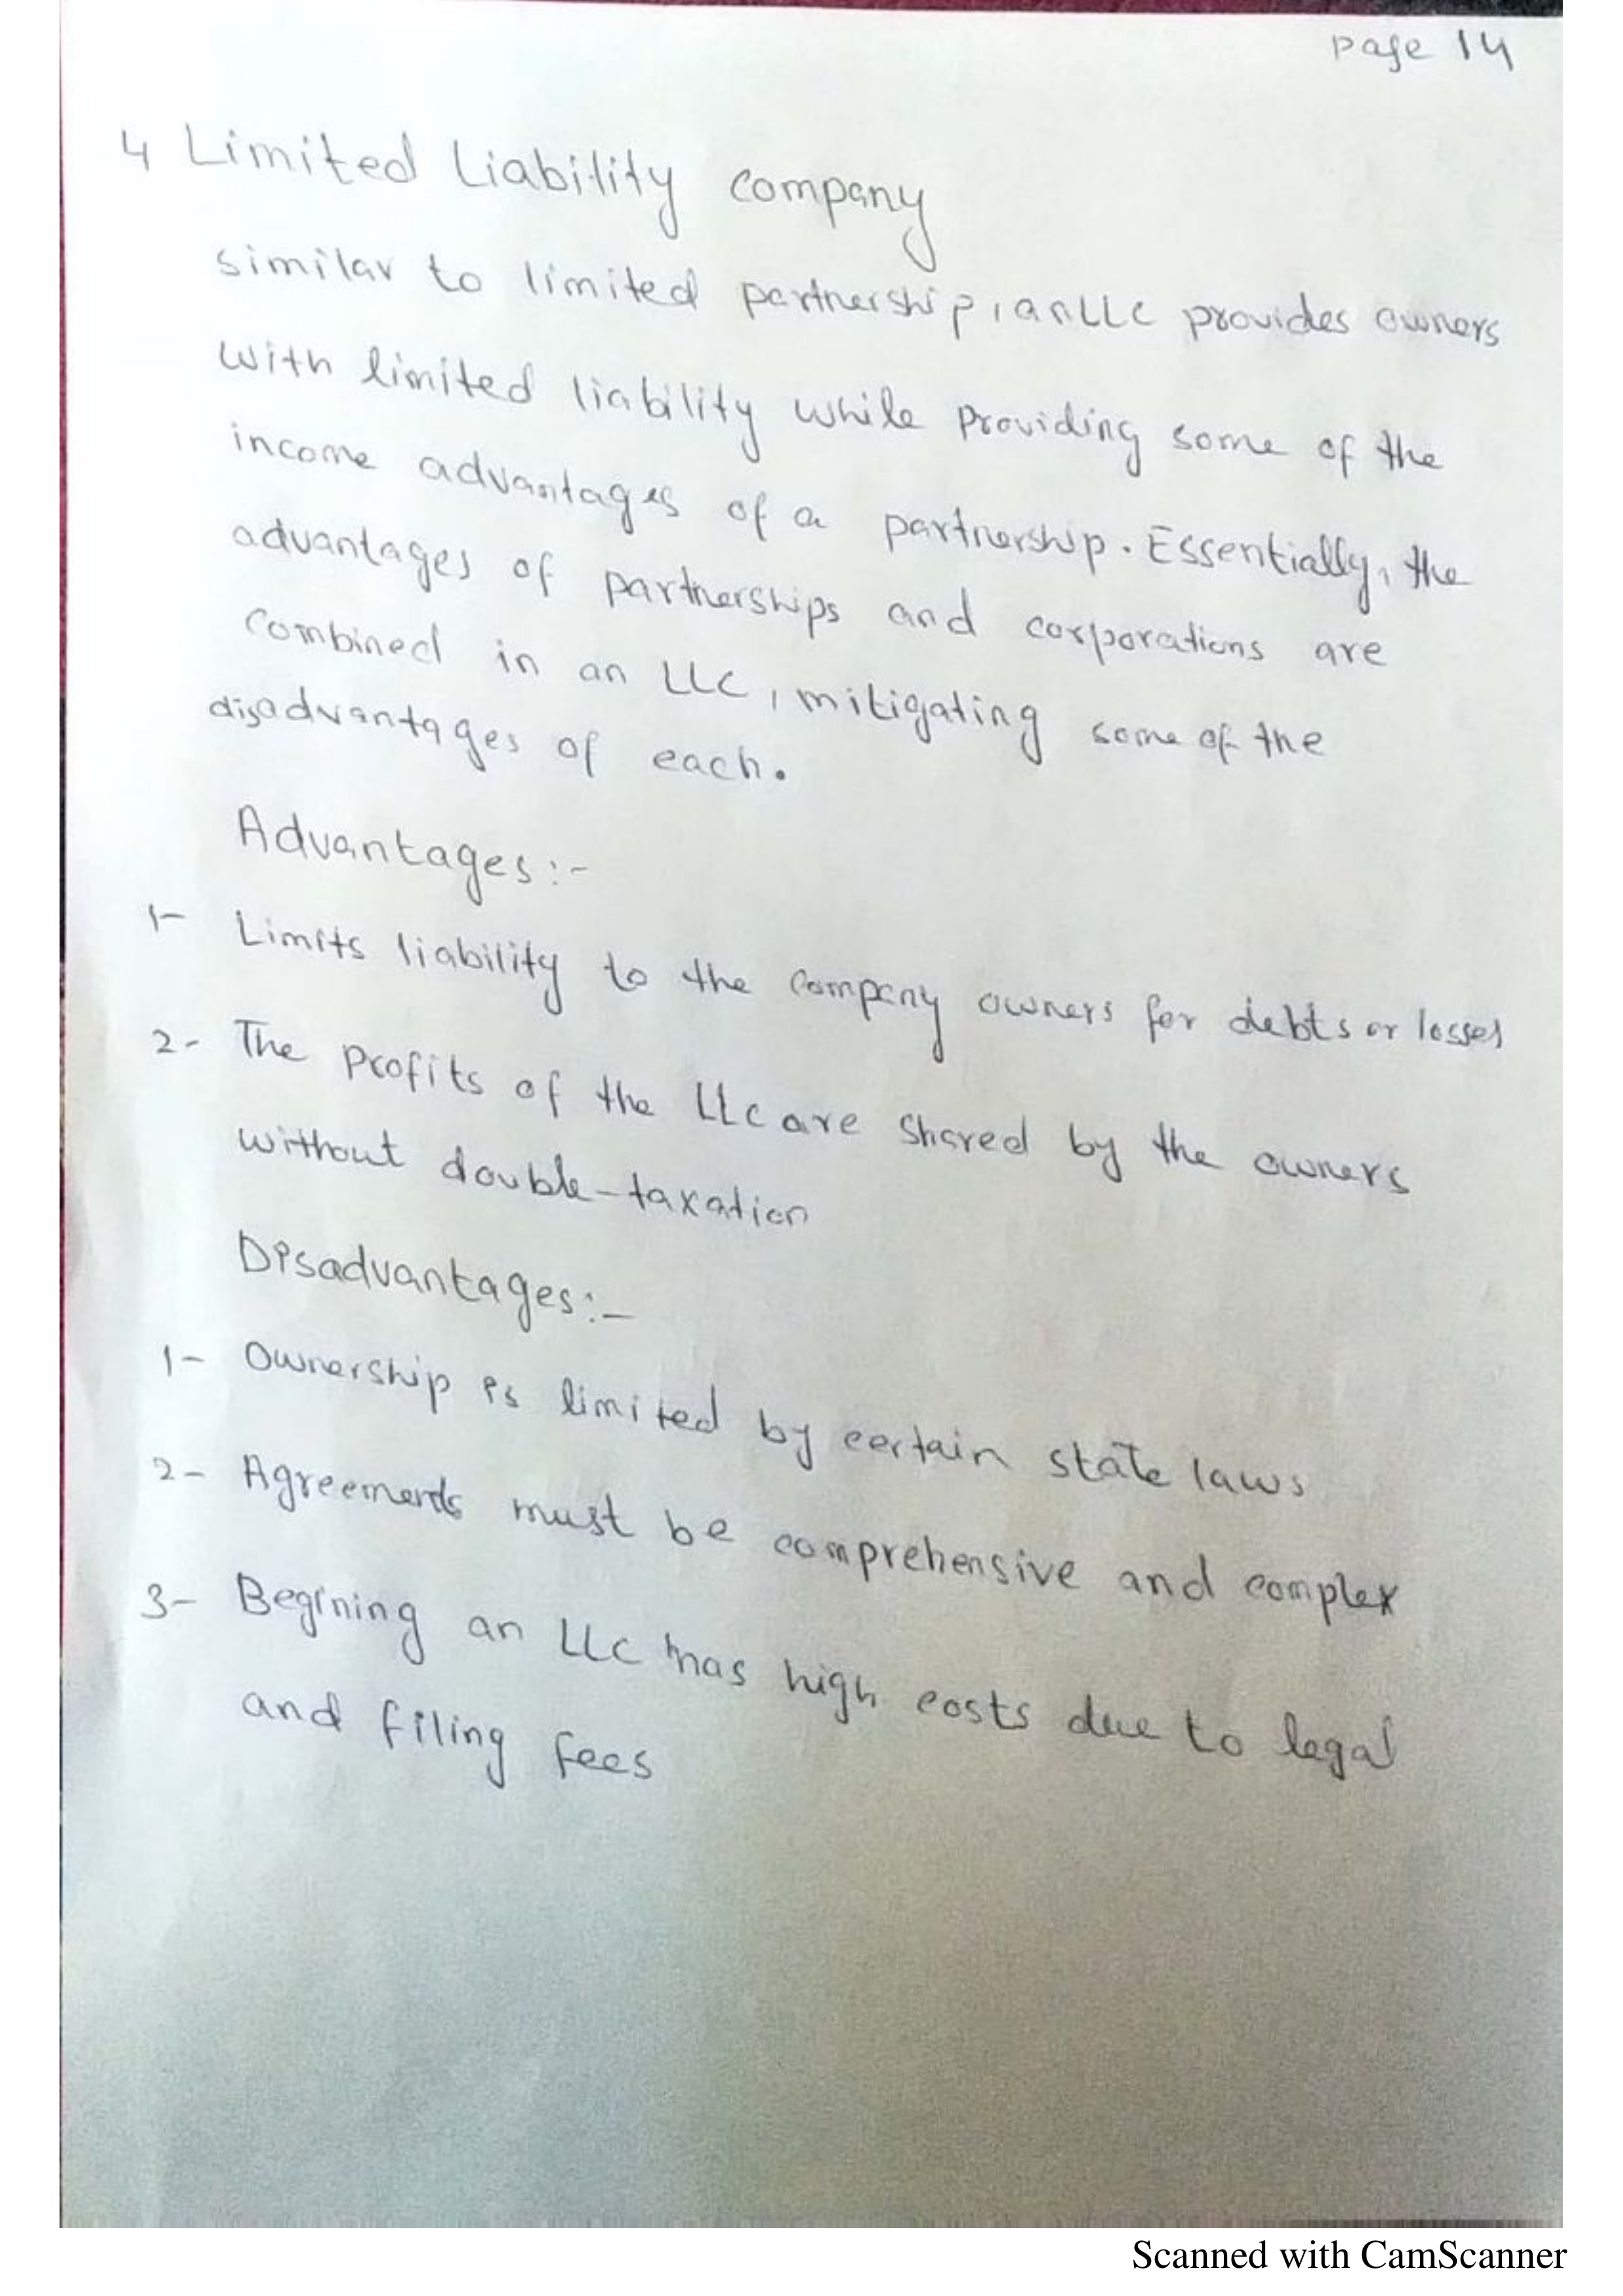 page 14
4 Limited Liability company
similar to limited partnership, an LLC provides owners
with limited liability while providing some of the
income advantages of a partnership. Essentially, the
advantages of partnerships and corporations are
combined in an LLC, mitigating some of the
disadvantages of each.
Advantages:-
1- Limits liability to the company owners for debts or losses
2- The profits of the LLC are shared by the owners
without double-taxation
Disadvantages:-
1- Ownership is limited by certain state laws
2- Agreements must be comprehensive and complex
3- Begining an LLC has high costs due to legal
and filing fees
Scanned with CamScanner